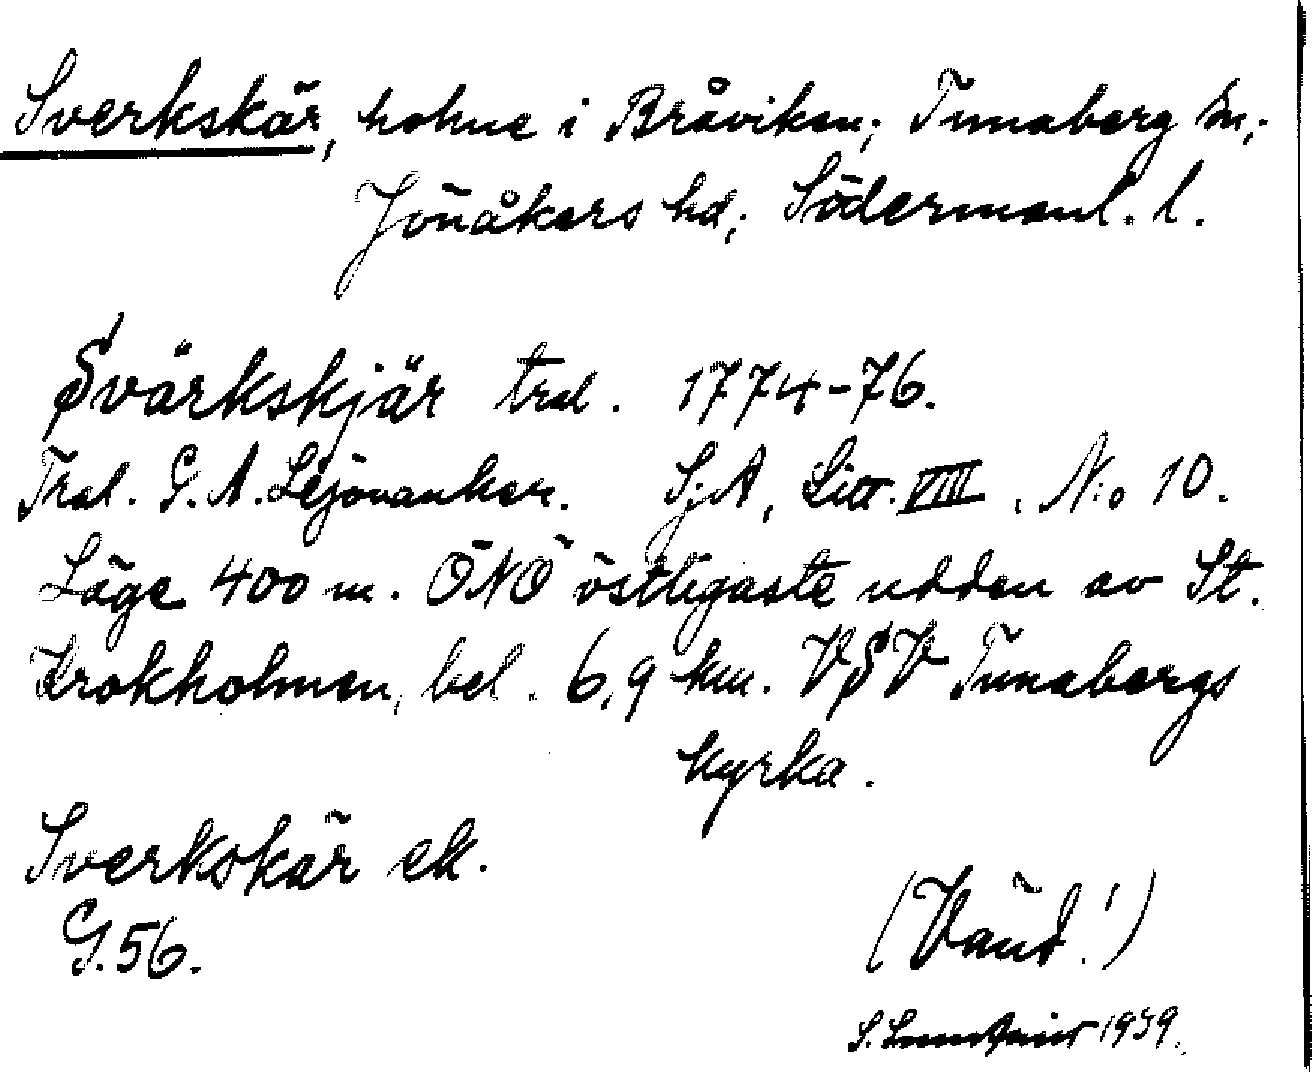 Sverkskär, holme i Bråviken; Tunaberg sn;
Jönåkers hd; Södermanl. l.
Svärkskjär trol. 1774-76.
Trol. G. A. Lejonanker. SjA, Litt. VIII, N:o 10.
Läge 400 m. ÖNÖ östligaste udden av St.
Krokholmen, bel. 6,9 km. VSV Tunabergs
kyrka.
Sverkskär ek.
G. 56.
(Vänd!)
S. 1939.